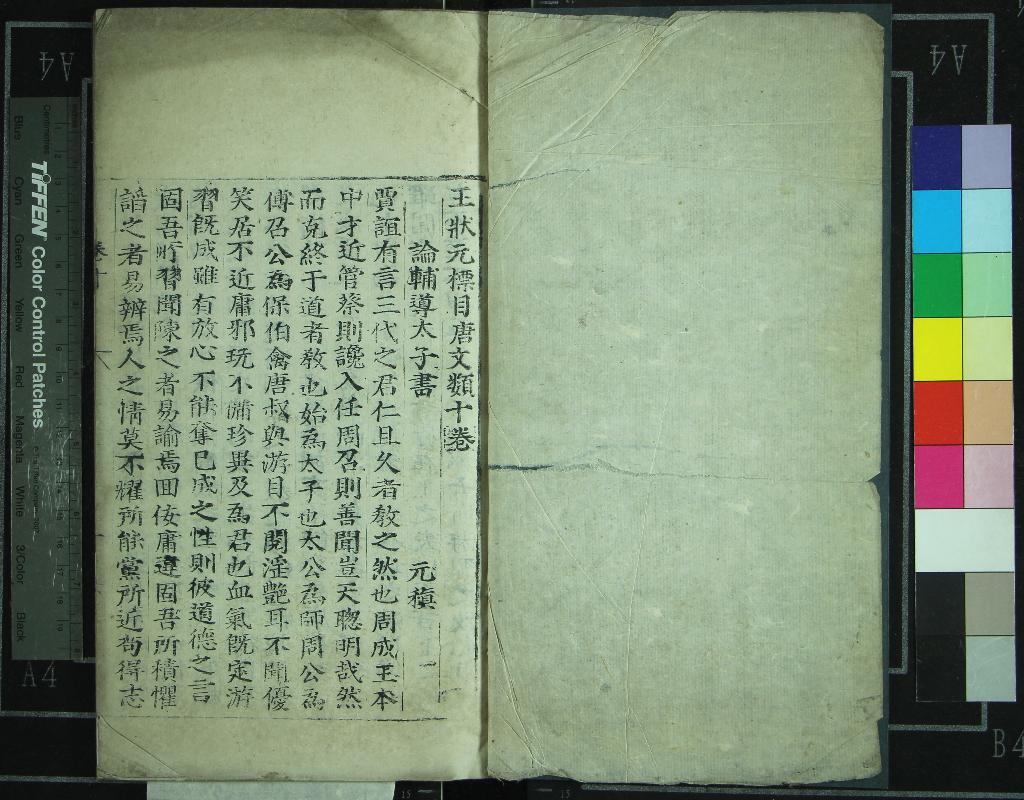 王狀元標目唐文類十卷
論輔導太子書 元稹
賈誼有言三代之君仁且久者教之然也周成王本
中才近管蔡則讒入任周召則善聞豈天聰明哉然
而克終于道者教也始為太子也太公為師周公為
傅召公為保伯禽唐叔與游目不閱淫艷耳不聞優
笑居不近庸邪玩不備珍異及為君也血氣既定游
習既成雖有放心不能奪已成之性則彼道德之言
固吾所習聞陳之者易諭焉回佞庸違固吾所積懼
諂之者易辨焉人之情莫不耀所能黨所近苟得志
卷十
TIFFEN Color Control Patches
Centimetres
Blue Cyan Green Yellow Red Magenta White 3/Color Black
A4
A4
A4
B4
15
15